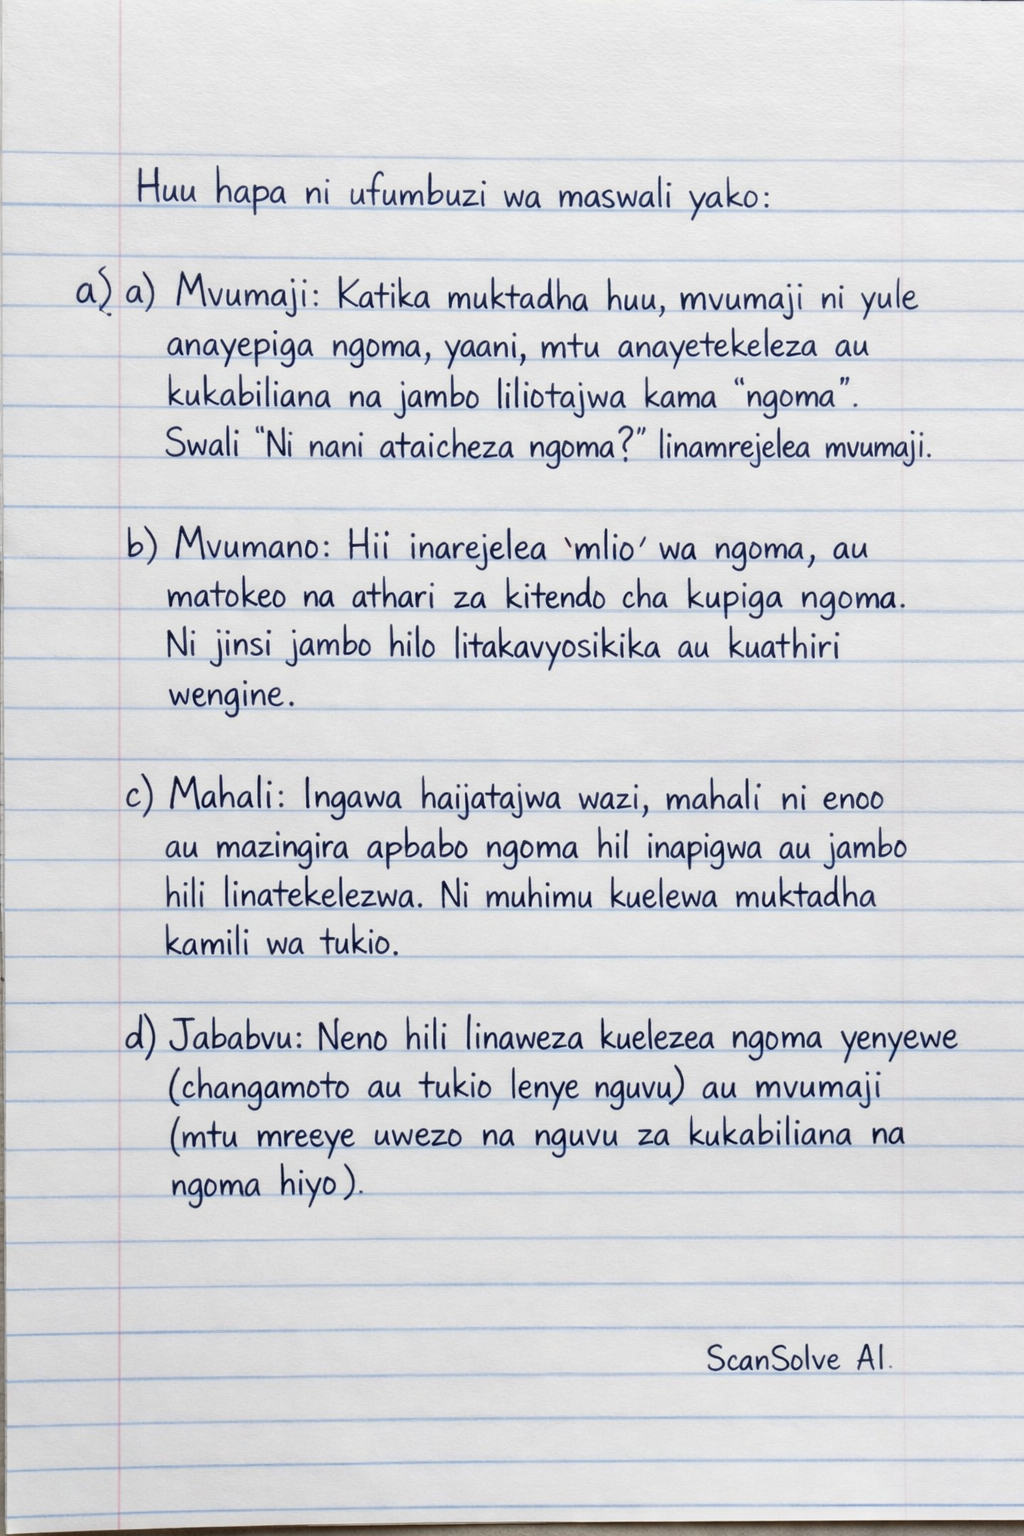 Huu hapa ni ufumbuzi wa maswali yako:
a) a) Mvumaji: Katika muktadha huu, mvumaji ni yule
anayepiga ngoma, yaani, mtu anayetekeleza au
kukabiliana na jambo liliotajwa kama "ngoma".
Swali "Ni nani ataicheza ngoma?" linamrejelea mvumaji.
b) Mvumano: Hii inarejelea 'mlio' wa ngoma, au
matokeo na athari za kitendo cha kupiga ngoma.
Ni jinsi jambo hilo litakavyosikika au kuathiri
wengine.
c) Mahali: Ingawa haijatajwa wazi, mahali ni enoo
au mazingira apbabo ngoma hil inapigwa au jambo
hili linatekelezwa. Ni muhimu kuelewa muktadha
kamili wa tukio.
d) Jababvu: Neno hili linaweza kuelezea ngoma yenyewe
(changamoto au tukio lenye nguvu) au mvumaji
(mtu mreeye uwezo na nguvu za kukabiliana na
ngoma hiyo).
ScanSolve AI.